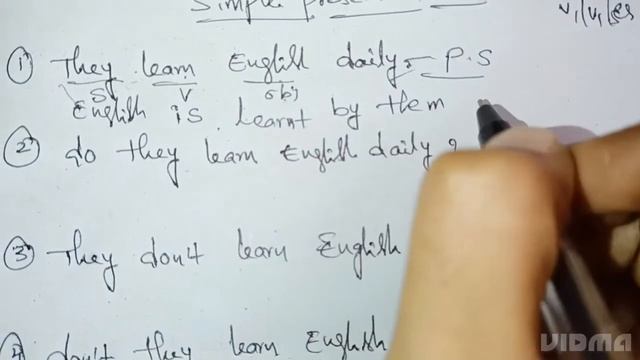 Simple present
V₁/V₁/es
① They learn English daily. – P.S
S V obj
English is learnt by them
② do they learn English daily ?
③ They don't learn English
④ don't they learn English
VIDMA